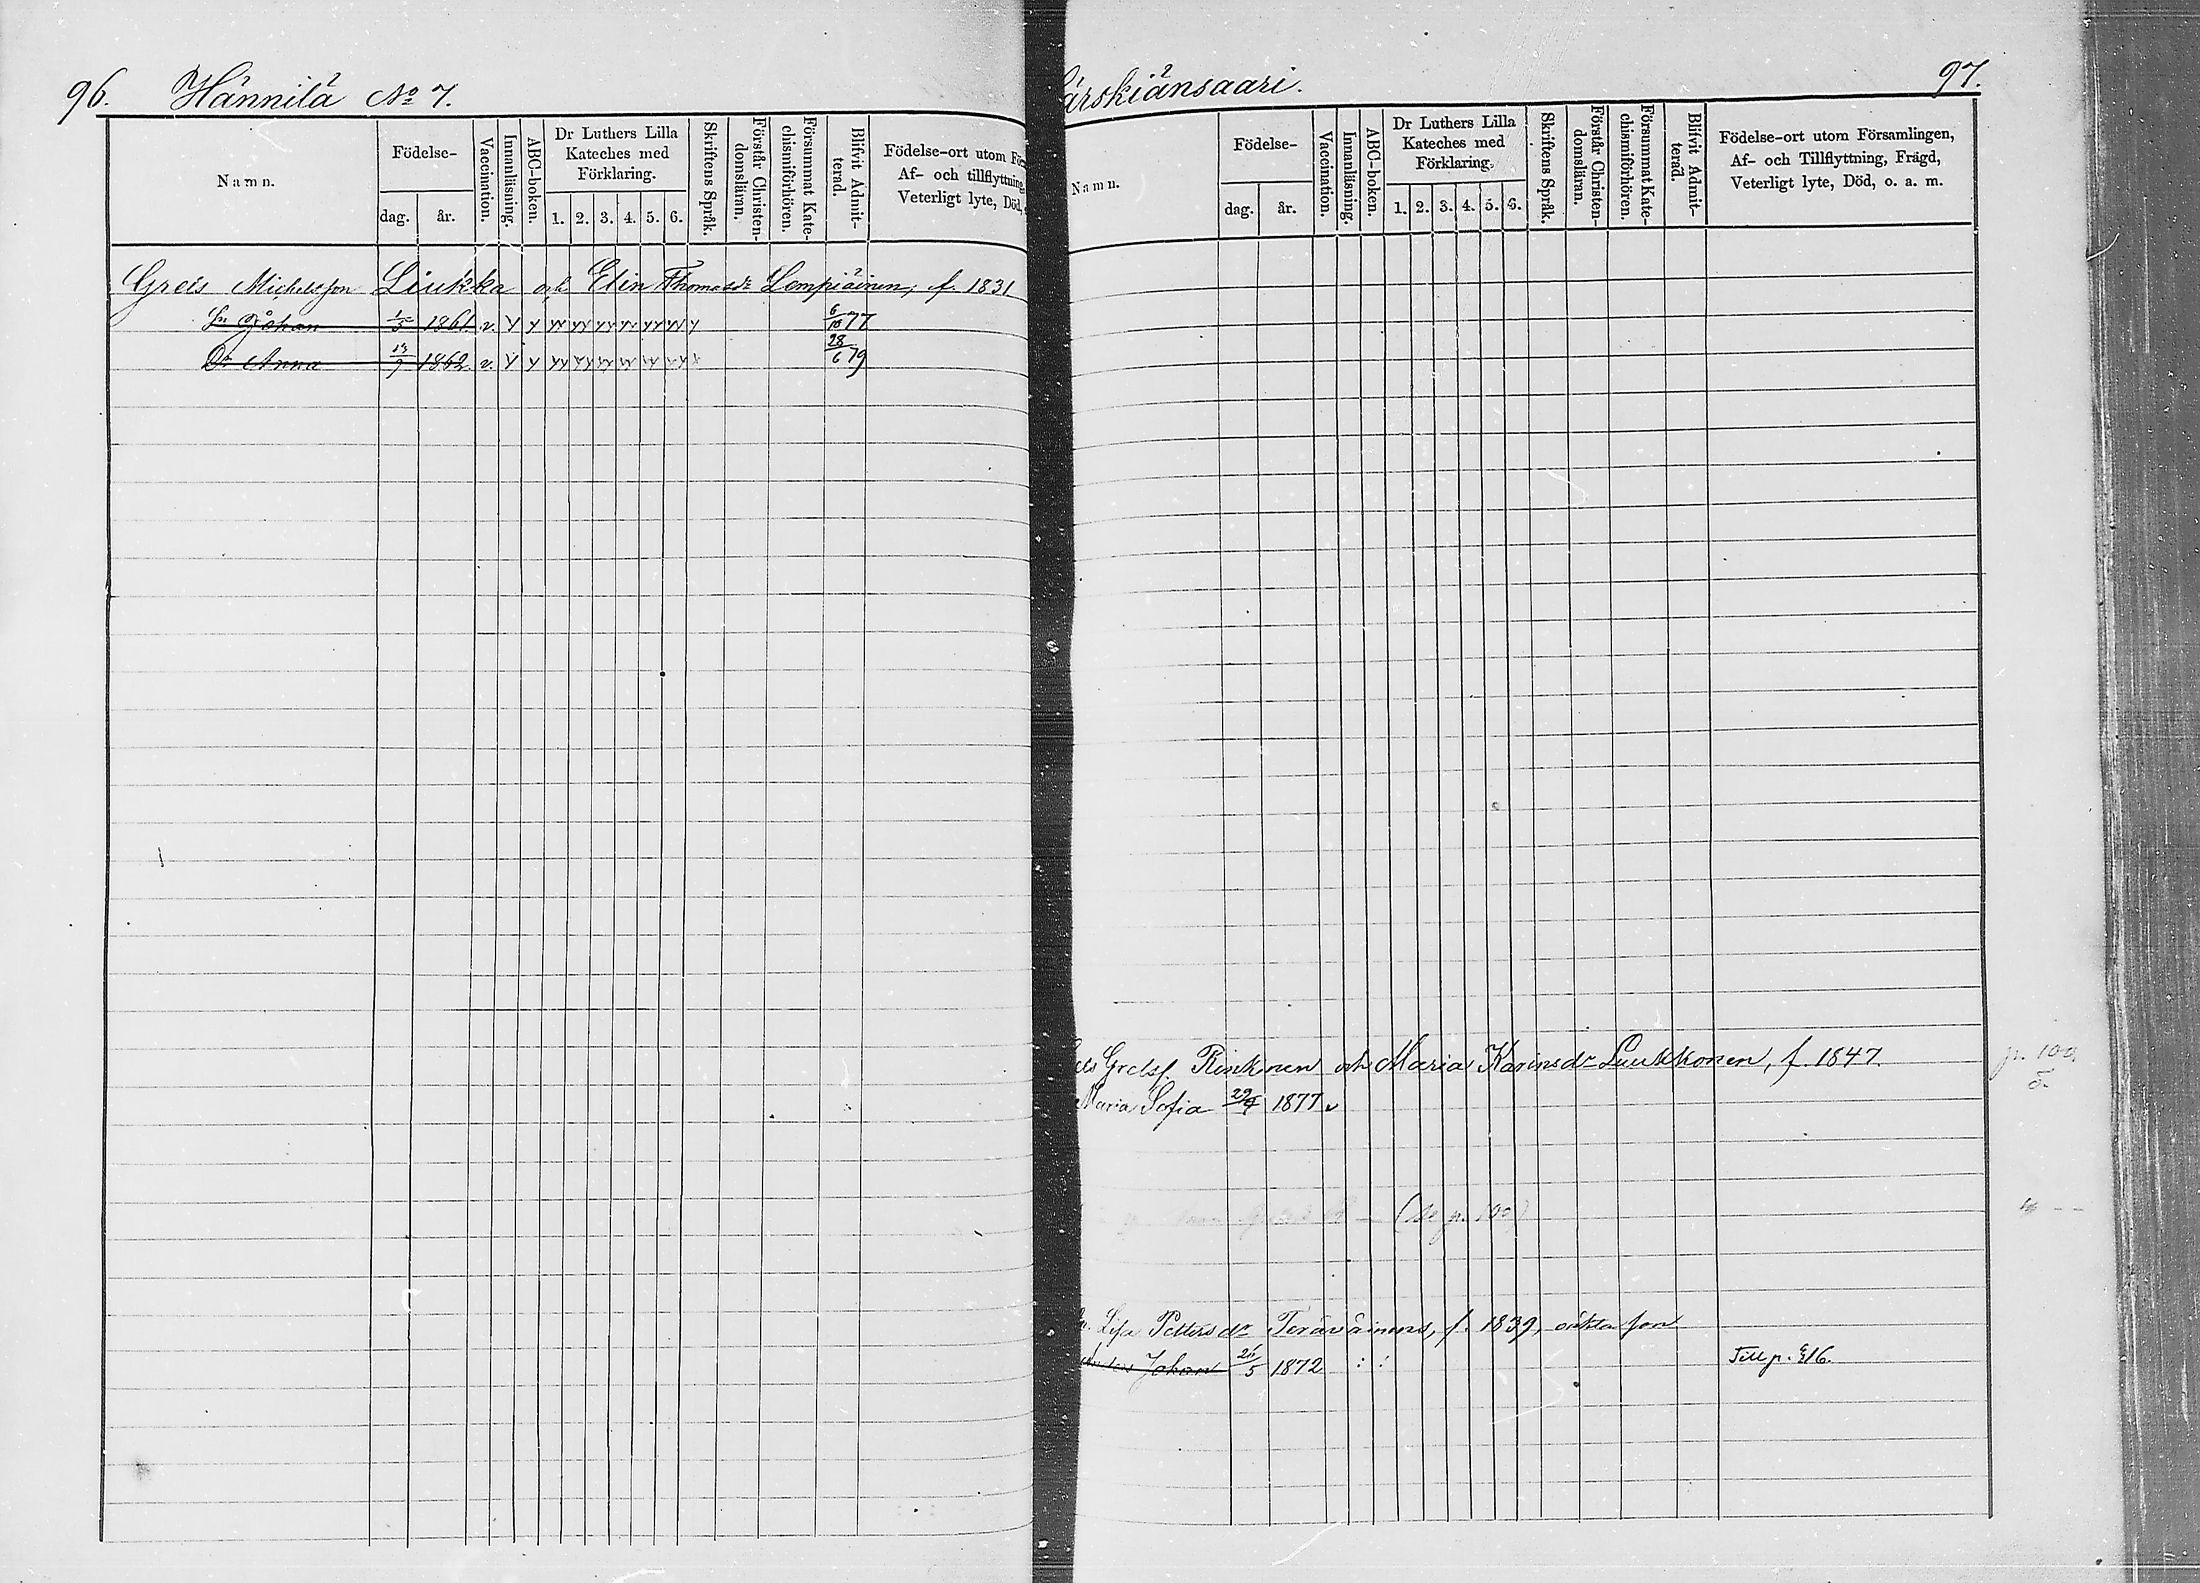 96. Hännilä No 7.
Namn.
Födelse-
dag. år.
Vaccination.
Innanläsning.
ABC-boken.
Dr Luthers Lilla
Kateches med
Förklaring.
1. 2. 3. 4. 5. 6.
Skriftens Språk.
Förstår Christen-
domsläran.
Försummat Kate-
chismiförhören.
Blifvit Admit-
terad.
Födelse-ort utom För
Af- och tillflyttning,
Veterligt lyte, Död,
Grels Michelsson Liukka och Elin Thomasdr Lempiäinen, f. 1831
Sn Johan 1/5 1861 v. 6/10 77
Dr Anna 1862 v. 28/6 79
ärskiänsaari. 97.
Namn.
Födelse-
dag. år.
Vaccination.
Innanläsning.
ABC-boken.
Dr Luthers Lilla
Kateches med
Förklaring.
1. 2. 3. 4. 5. 6.
Skriftens Språk.
Förstår Christen-
domsläran.
Försummat Kate-
chismiförhören.
Blifvit Admit-
terad.
Födelse-ort utom Församlingen,
Af- och Tillflyttning, Frägd,
Veterligt lyte, Död, o. a. m.
els Grelss. Rinkinen och Maria Karinsdr Luukkonen, f. 1847. p. 100
Maria Sofia 1877 v
(se p. 100)
Lisa Pettersdr Teräväinens, f. 1839, oäkta son
Johan 1872 Till p.